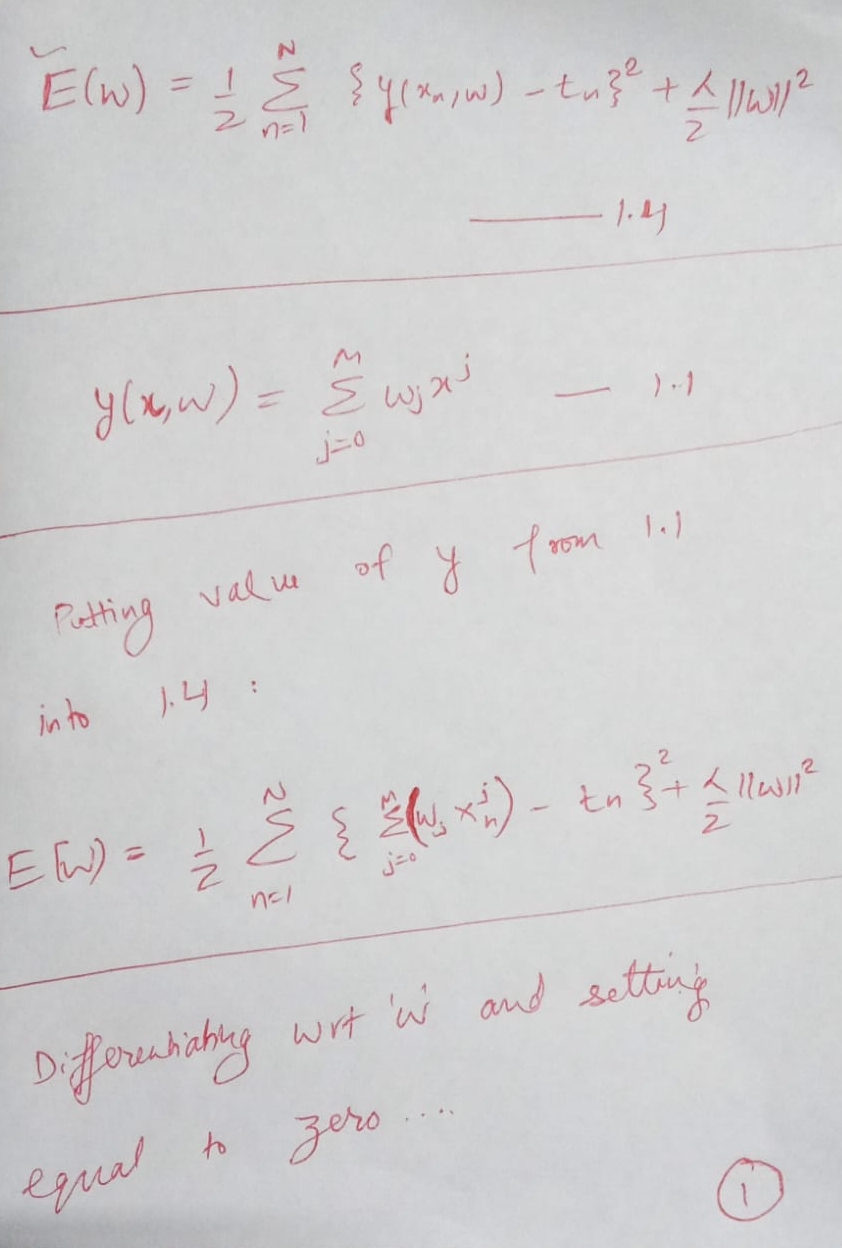 Ẽ(w) = 1/2 Σ_{n=1}^{N} { y(x_n, w) - t_n }² + λ/2 ||w||²
—— 1.4
y(x,w) = Σ_{j=0}^{M} w_j x^j — 1.1
Putting value of y from 1.1
into 1.4 :
E(w) = 1/2 Σ_{n=1}^{N} { Σ_{j=0}^{M} (w_j x_n^j) - t_n }² + λ/2 ||w||²
Differentiating wrt 'w' and setting
equal to zero ....
1